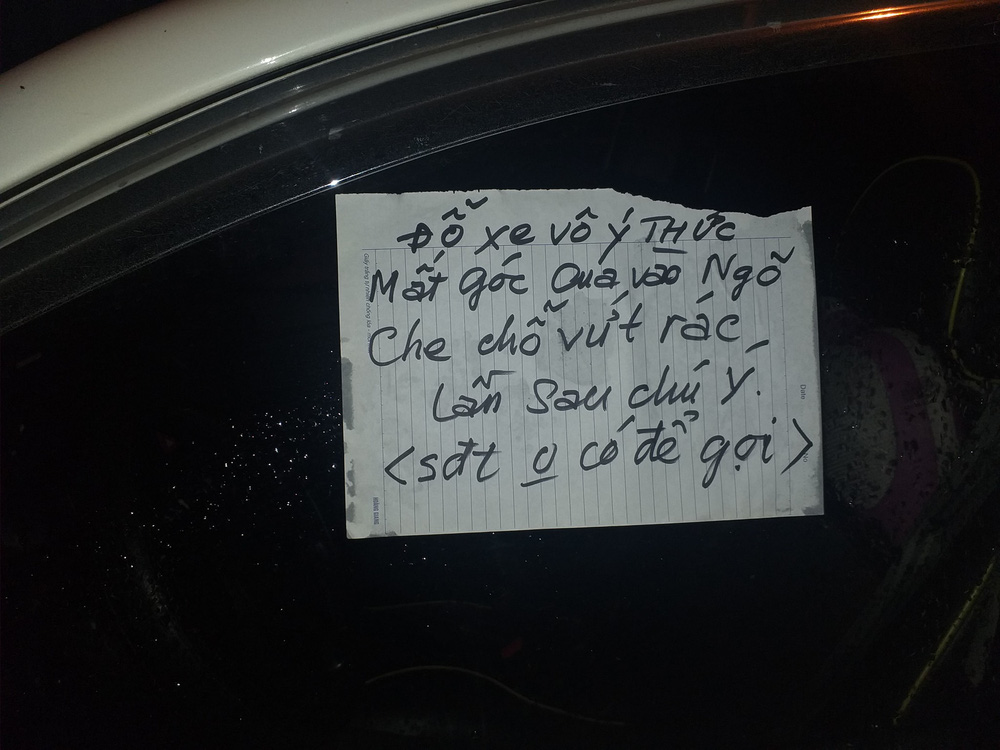 Đỗ xe vô ý THỨC
Mất góc Quá vào Ngõ
Che chỗ vứt rác
Lần Sau chú Ý.
<sđt 0 có để gọi>
Date
No